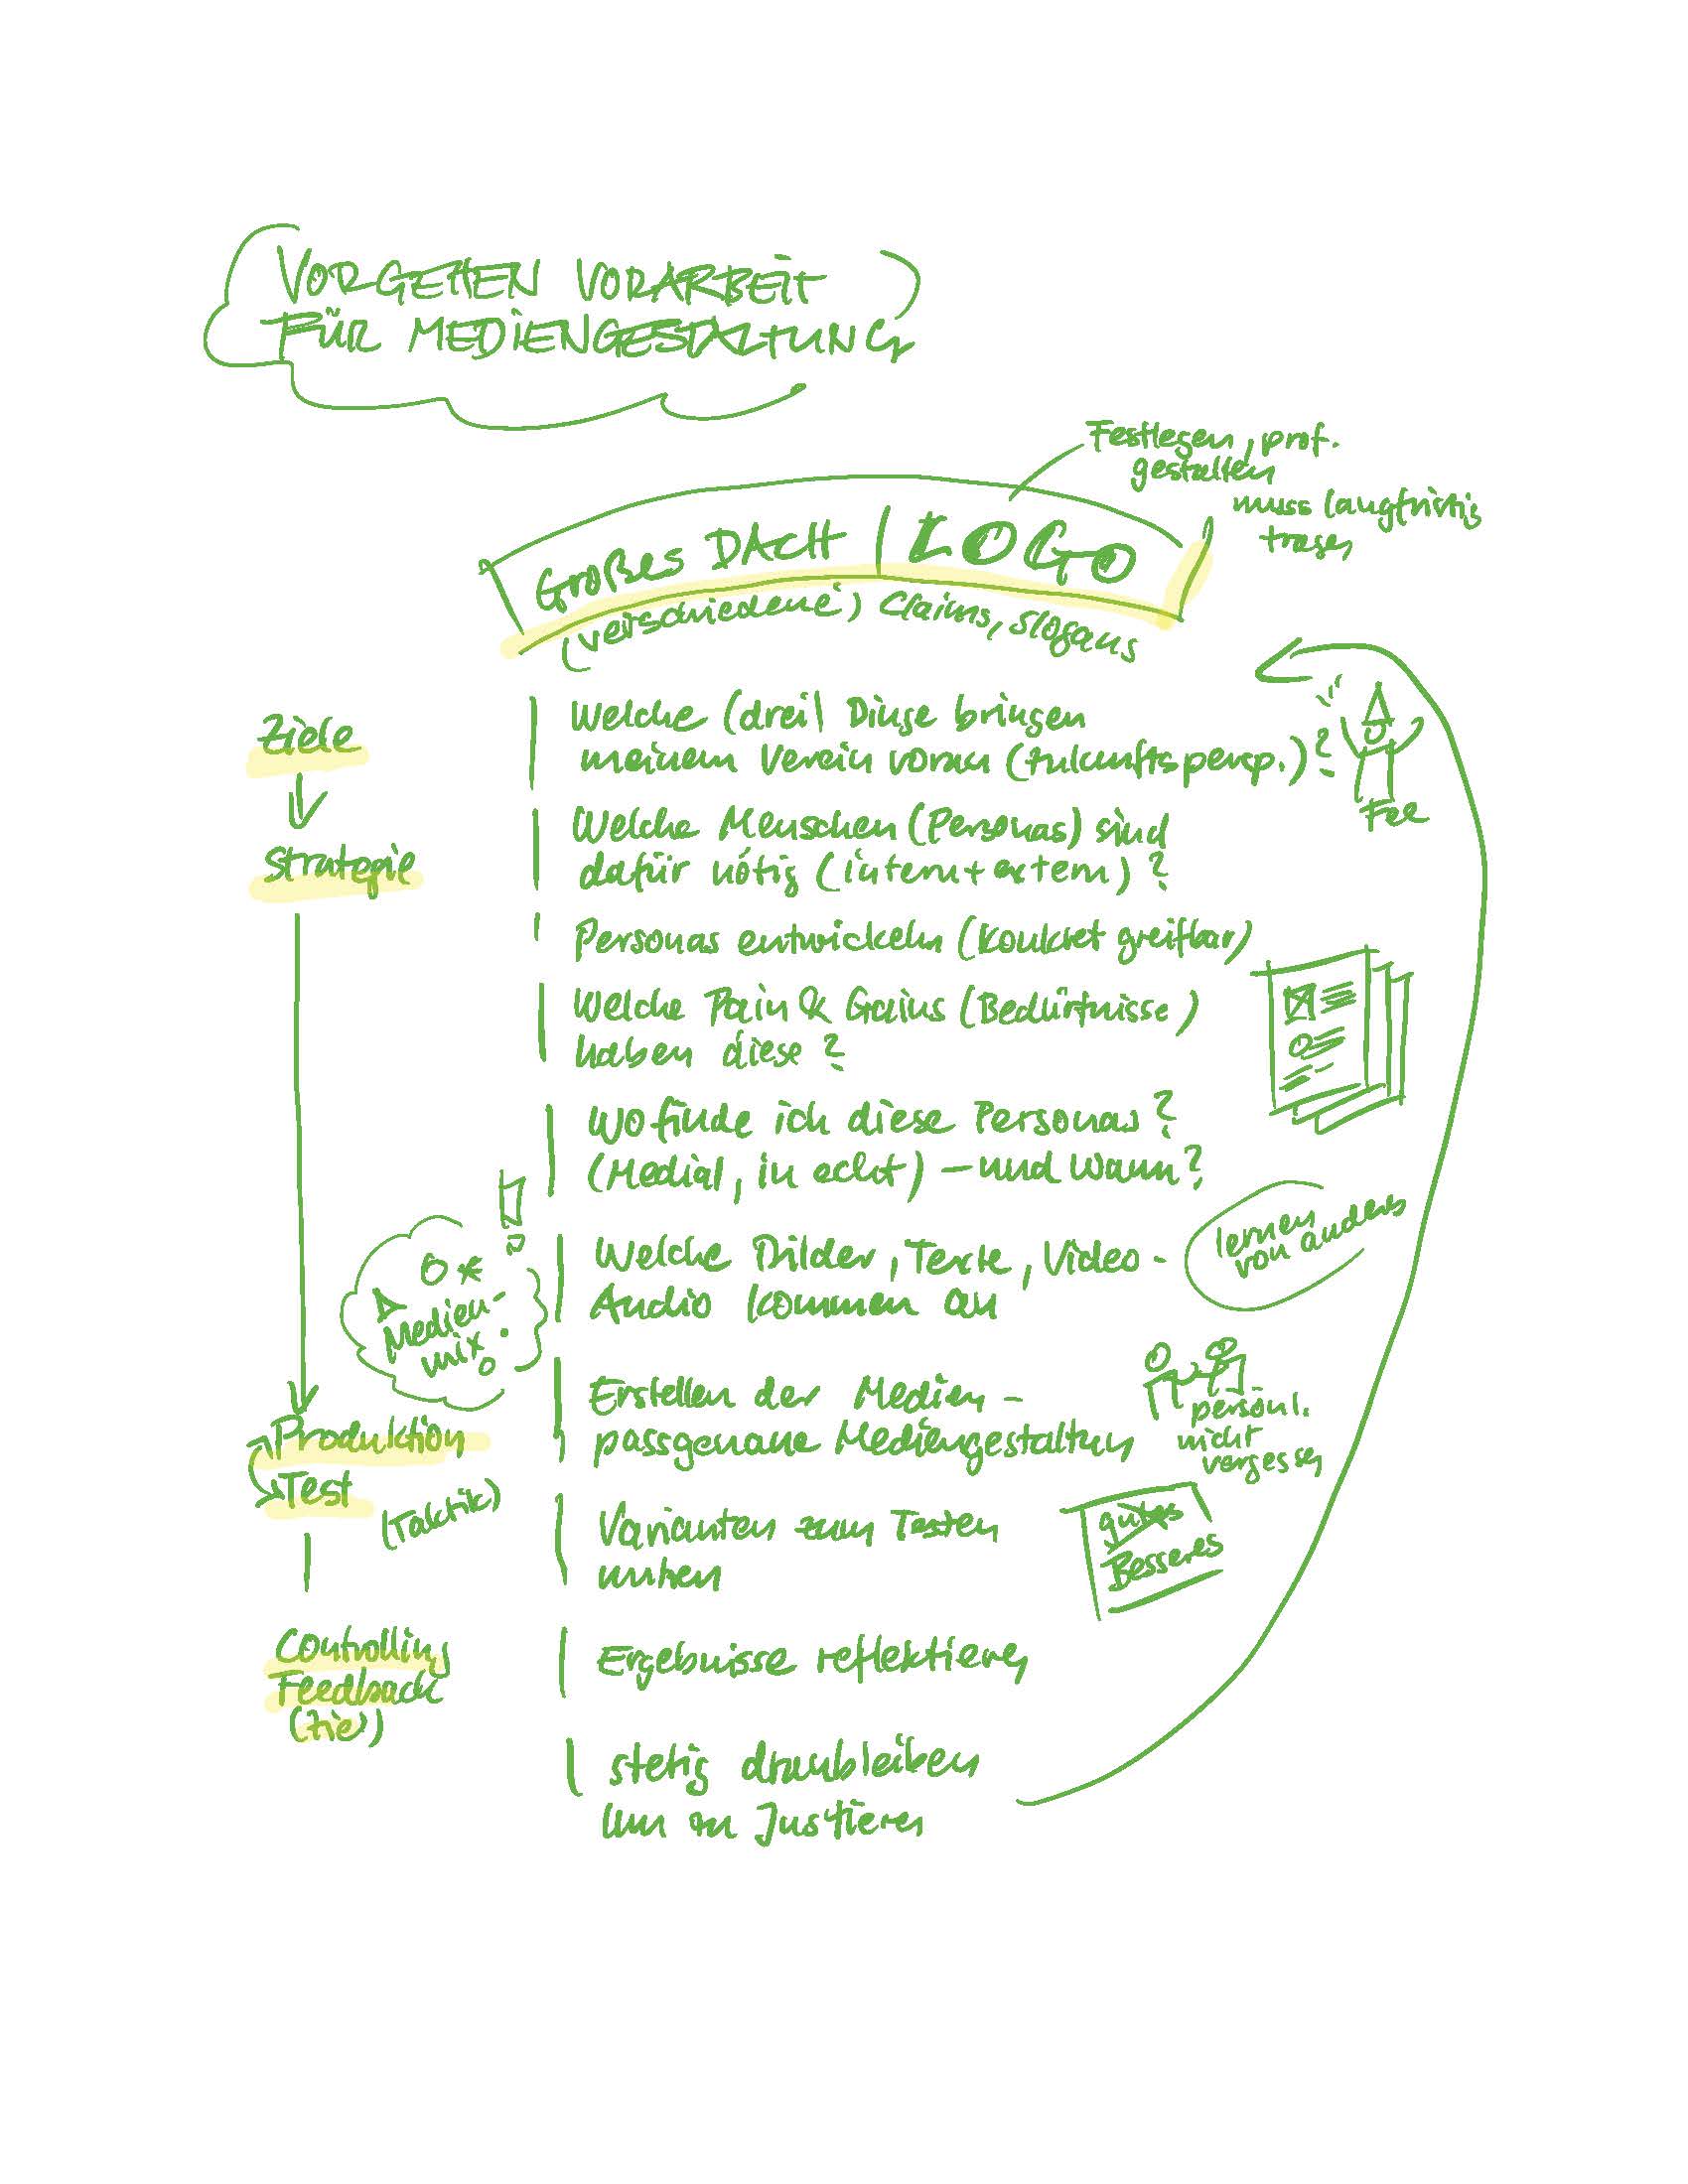 VORGEHEN VORARBEIT
FÜR MEDIENGESTALTUNG
Festlegen, prof.
gestalten
muss langfristig
tragen
Großes DACH | LOGO
(verschiedene) Claims, Slogans
Ziele
Welche (drei) Dinge bringen
meinem Verein voran (Zukunftspersp.)?
Fee
Strategie
Welche Menschen (Personas) sind
dafür nötig (intern + extern)?
Personas entwickeln (konkret greifbar)
Welche Pain & Gains (Bedürfnisse)
haben diese?
Wo finde ich diese Personas?
(Medial, in echt) – und wann?
lernen
von anders
Welche Bilder, Texte, Video -
Audio kommen an
Medien-
mix
Erstellen der Medien -
passgenaue Mediengestaltung
persönl.
nicht
vergessen
Produktion
Test
(Taktik)
Varianten zum Testen
nutzen
gutes
Besseres
Controlling
Feedback
(Ziel)
Ergebnisse reflektieren
stetig dranbleiben
um zu Justieren